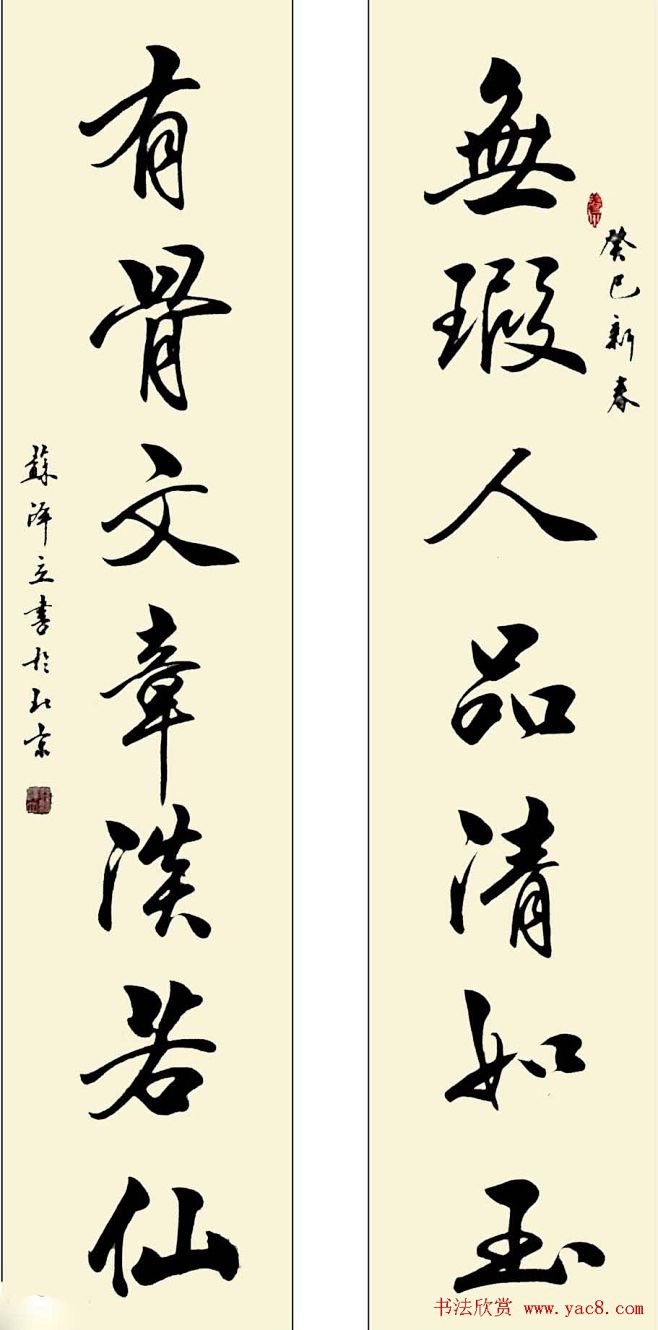 癸巳新春
無瑕人品清如玉
有骨文章淡若仙
蘇澤立書於北京
书法欣赏 www.yac8.com